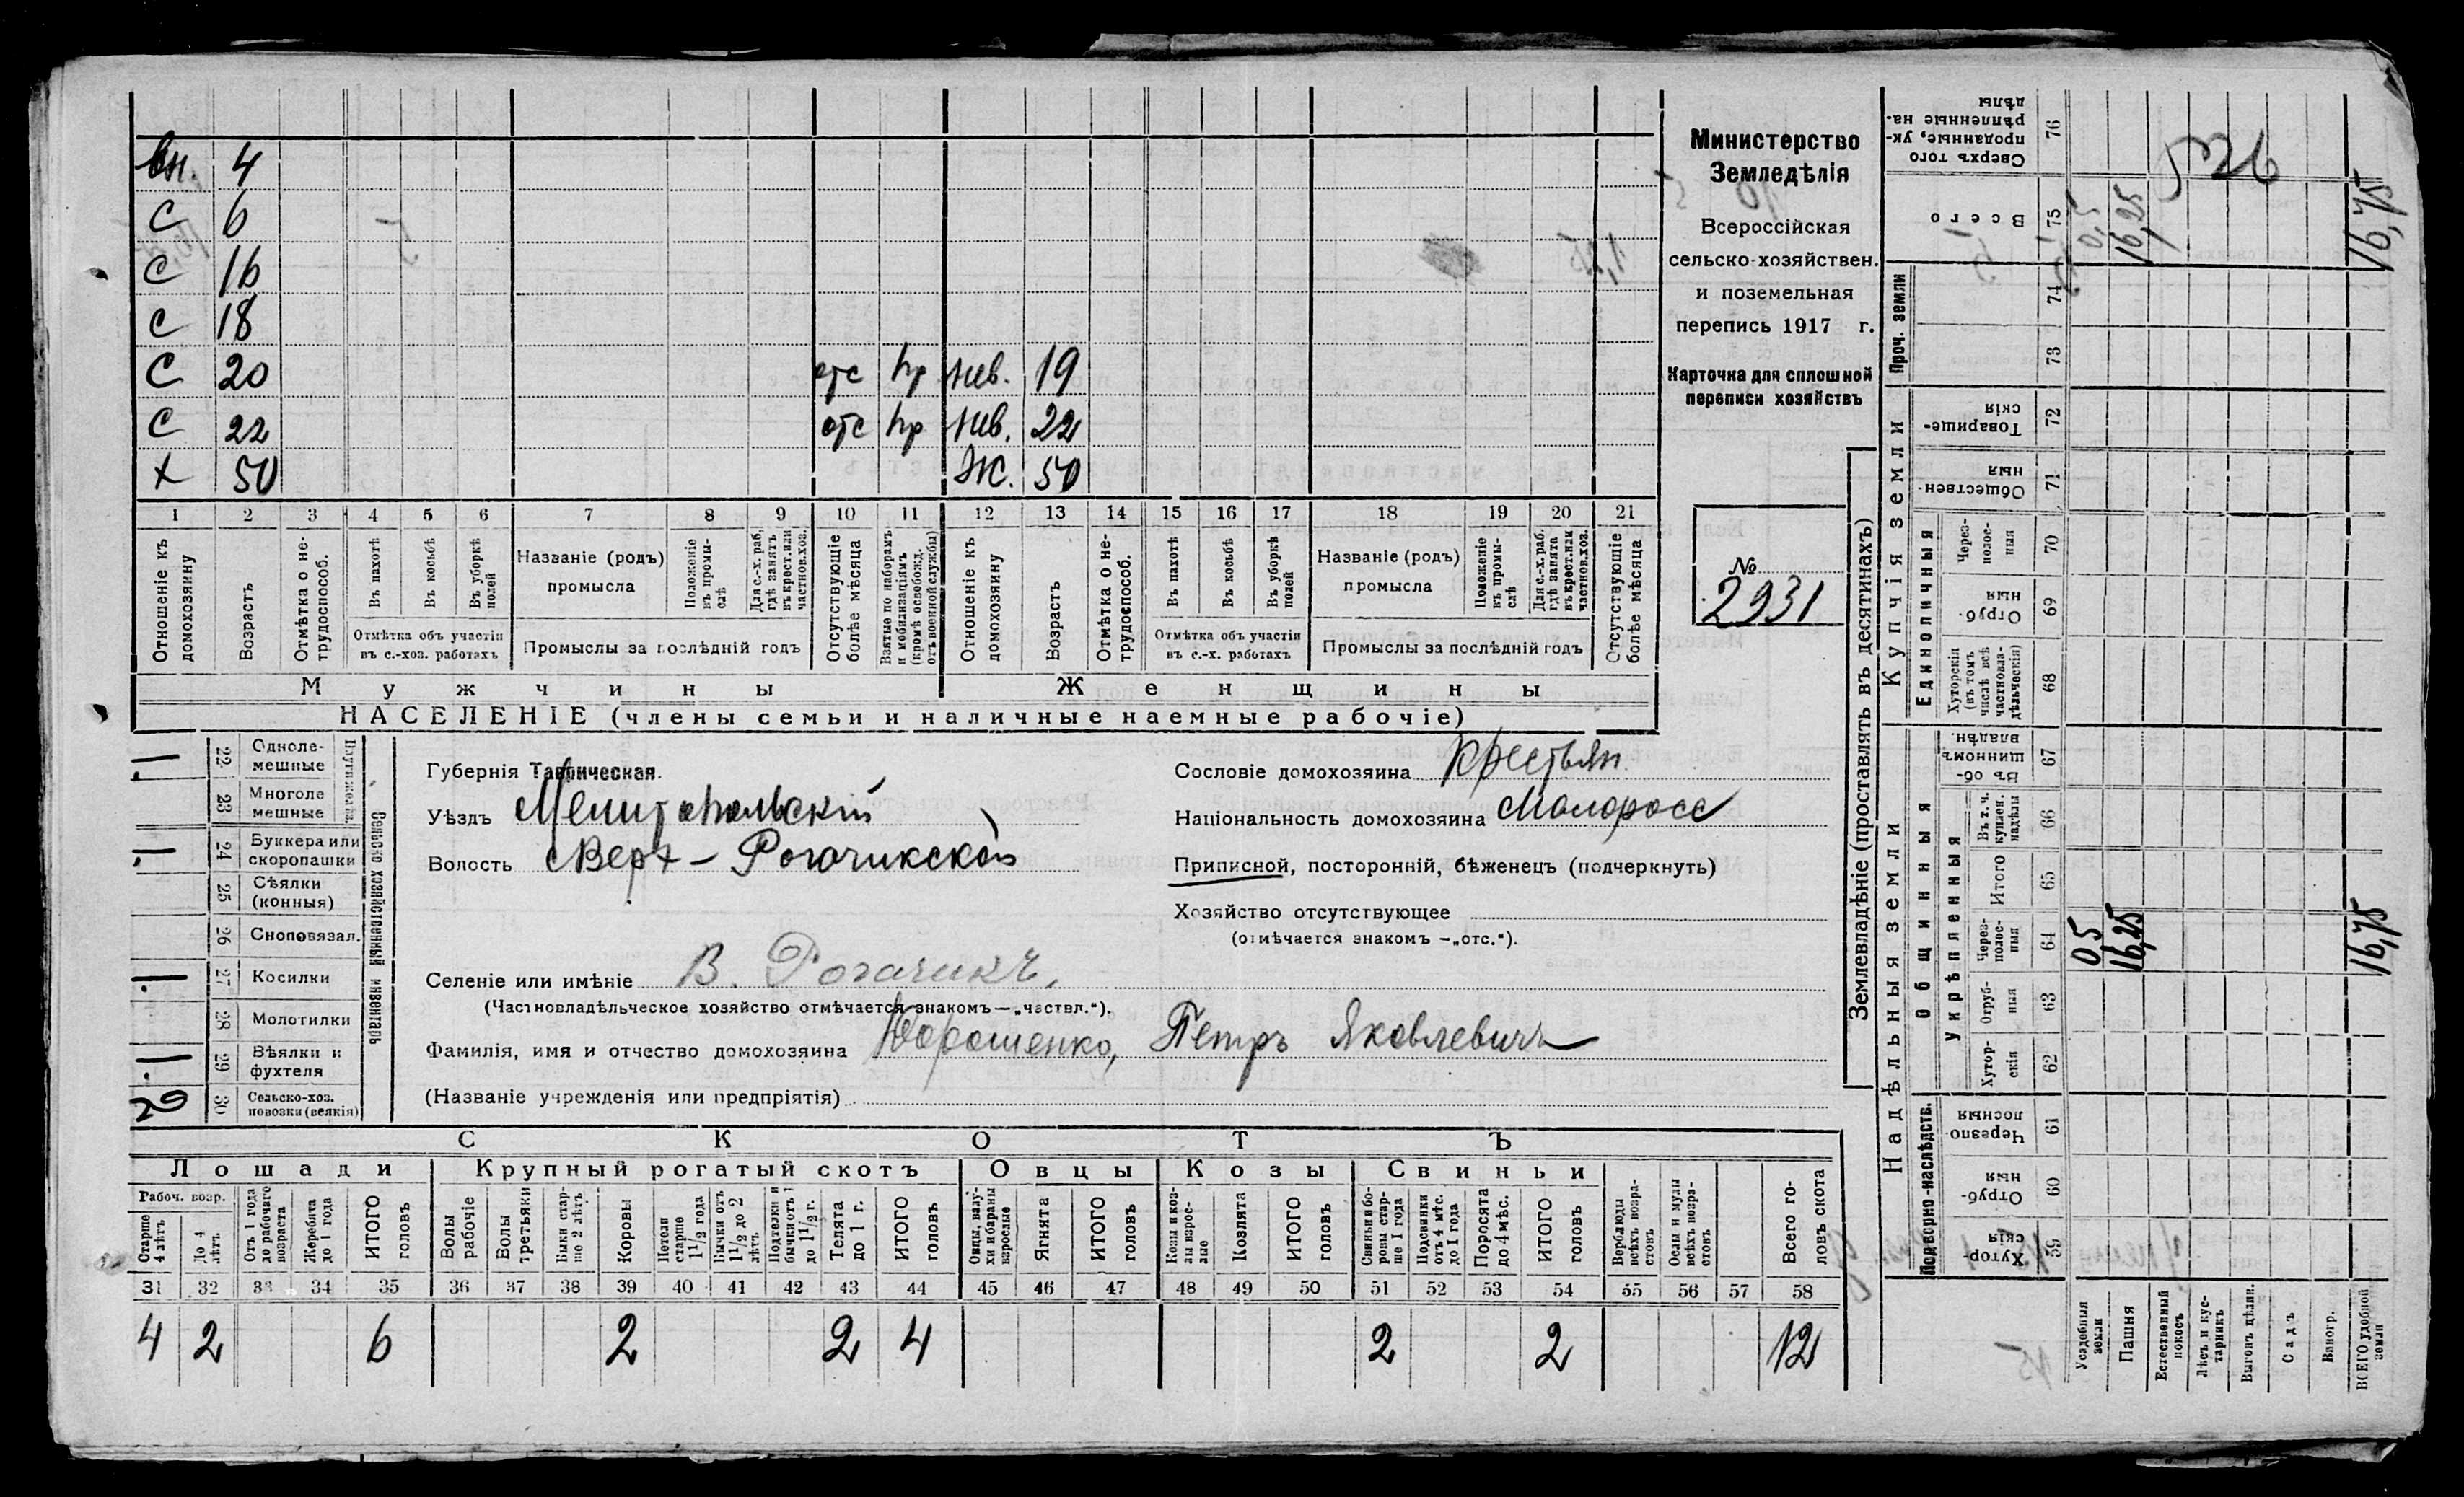 вн. 4
С 6
С 16
С 18
С 20 отс пр нев. 19
С 22 отс пр нев. 22
х 50 Ж. 50
1 2 3 4 5 6 7 8 9 10 11 12 13 14 15 16 17 18 19 20 21
Отношеніе къ домохозяину
Возрастъ
Отмѣтка о нетрудоспособ.
Въ пахотѣ
Въ косьбѣ
Въ уборкѣ полей
Отмѣтка объ участіи въ с.-хоз. работахъ
Названіе (родъ) промысла
Положеніе въ промыслѣ
Для с.-х. раб. гдѣ занятъ въ крест. или частнов. хоз.
Промыслы за послѣдній годъ
Отсутствующіе болѣе мѣсяца
Взятые по наборамъ и мобилизаціямъ (кромѣ освобожд. отъ военной службы)
Отношеніе къ домохозяину
Возрастъ
Отмѣтка о нетрудоспособ.
Въ пахотѣ
Въ косьбѣ
Въ уборкѣ полей
Отмѣтка объ участіи въ с.-х. работахъ
Названіе (родъ) промысла
Положеніе въ промыслѣ
Для с.-х. раб. гдѣ занята въ крест. или частнов. хоз.
Промыслы за послѣдній годъ
Отсутствующіе болѣе мѣсяца
Мужчины Женщины
НАСЕЛЕНІЕ (члены семьи и наличные наемные рабочіе)
Министерство
Земледѣлія
Всероссійская
сельско-хозяйствен.
и поземельная
перепись 1917 г.
Карточка для сплошной
переписи хозяйствъ
№
2931
1 22 Однолемешные
23 Многолемешные
1 24 Буккера или скоропашки
25 Сѣялки (конныя)
26 Сноповязал.
1 27 Косилки
28 Молотилки
1 29 Вѣялки и фухтеля
2 30 Сельско-хоз. повозки (всякія)
Сельско хозяйственный инвентарь
Губернія Таврическая.
Уѣздъ Мелитопольскій
Волость Верх-Рогачикской
Селеніе или имѣніе В. Рогачикъ.
(Частновладѣльческое хозяйство отмѣчается знакомъ—„частвл.“).
Фамилія, имя и отчество домохозяина Дорошенко, Петръ Яковлевичъ
(Названіе учрежденія или предпріятія)
Сословіе домохозяина крестьян.
Національность домохозяина Малоросс
Приписной, посторонній, бѣженецъ (подчеркнуть)
Хозяйство отсутствующее
(отмѣчается знакомъ —„отс.“).
СКОТЪ
Лошади Крупный рогатый скотъ Овцы Козы Свиньи
Рабоч. возр.
Старше 4 лѣтъ
До 4 лѣтъ
Отъ 1 года до рабочаго возраста
Жеребята до 1 года
ИТОГО головъ
Волы рабочіе
Волы третьяки
Быки старше 2 лѣтъ
Коровы
Нетели старше 1 1/2 года
Бычки отъ 1 1/2 до 2 лѣтъ
Подтелки и бычки отъ 1 до 1 1/2 г.
Телята до 1 г.
ИТОГО головъ
Овцы, валухи и бараны взрослые
Ягнята
ИТОГО головъ
Козы и козлы взрослые
Козлята
ИТОГО головъ
Свиньи и боровы старше 1 года
Подсвинки отъ 4 мѣс. до 1 года
Поросята до 4 мѣс.
ИТОГО головъ
Верблюды всѣхъ возрастовъ
Ослы и мулы всѣхъ возрастовъ
Всего головъ скота
31 32 33 34 35 36 37 38 39 40 41 42 43 44 45 46 47 48 49 50 51 52 53 54 55 56 57 58
4 2 6 2 2 4 2 2 12
Землевладѣніе (проставлять въ десятинахъ)
Купчія земли
Надѣльныя земли
Проч. земли
Единоличныя
Общинныя
Укрѣпленныя
Подворно-наслѣдств.
Сверхъ того проданные, укрѣпленные надѣлы 76
Всего 75
74
73
Товарищескія 72
Общественныя 71
Черезполосныя 70
Отрубныя 69
Хуторскія (въ томъ числѣ всѣ частновладѣльческія) 68
Въ общинномъ владѣн. 67
Въ т. ч. куплен. надѣлы 66
Итого 65
Черезполосныя 64
Отрубныя 63
Хуторскія 62
Черезполосныя 61
Отрубныя 60
Хуторскія 59
Усадебныя земли 0,5 0,5
Пашня 16,25 16,25
Естественный покосъ
Лѣсъ и кустарникъ
Выгонъ цѣлин.
Садъ
Виногр.
ВСЕГО удобной земли 16,75 16,75